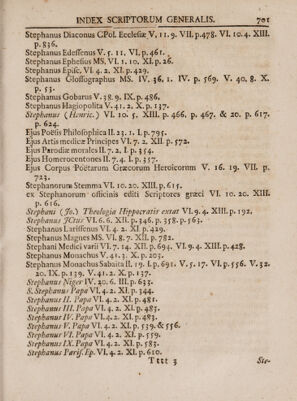 INDEX SCRIPTORUM GENERALIS. 701
Stephanus Diaconus CPol. Ecclesiæ V. 11. 9. VII. p.478. VI. 10. 4. XIII.
p. 836.
Stephanus Edessenus V. 5. 11. VI. p. 461.
Stephanus Ephesius MS. VI. 1. 10. XI. p. 26.
Stephanus Episc. VI. 4. 2. XI. p. 429.
Stephanus Glossographus MS. IV. 36, 1. IV. p. 569. V. 40, 8. X.
p. 53.
Stephanus Gobarus V. 38. 9. IX. p. 486.
Stephanus Hagiopolita V. 41. 2. X. p. 137.
Stephanus (Henric.) VI. 10. 5. XIII. p. 466. p. 467. & 20. p. 617.
p. 624.
Ejus Poësis Philosophica II. 23. 1. I. p. 795.
Ejus Artis medicæ Principes VI. 7. 2. XII. p. 572.
Ejus Parodiæ morales II. 7. 2. I. p. 354.
Ejus Homerocentones II. 7. 4. I. p. 357.
Ejus Corpus Poëtarum Græcorum Heroicorum V. 16. 19. VII. p.
723.
Stephanorum Stemma VI. 10. 20. XIII. p. 615.
ex Stephanorum officinis editi Scriptores græci VI. 10. 20. XIII.
p. 616.
Stephani (Jo.) Theologia Hippocratis extat VI. 9. 4. XIII. p. 192.
Stephanus JCtus VI. 6. 6. XII. p. 346. p. 358. p. 563.
Stephanus Lariffenus VI. 4. 2. XI. p. 429.
Stephanus Magnes MS. VI. 8. 7. XII. p. 782.
Stephani Medici varii VI. 7. 14. XII. p. 694. VI. 9. 4. XIII. p. 428.
Stephanus Monachus V. 41. 3. X. p. 203.
Stephanus Monachus Sabaita II. 19. I. p. 691. V. 5. 17. VI. p. 556. V. 32.
20. IX. p. 139. V. 41. 2. X. p. 137.
Stephanus Niger IV. 20. 6. III. p. 633.
S. Stephanus Papa VI. 4. 2. XI. p. 344.
Stephanus II. Papa VI. 4. 2. XI. p. 481.
Stephanus III. Papa VI. 4. 2. XI. p. 483.
Stephanus IV. Papa VI. 4. 2. XI. p. 483.
Stephanus V. Papa VI. 4. 2. XI. p. 539. & 556.
Stephanus VI. Papa VI. 4. 2. XI. p. 559.
Stephanus IX. Papa VI. 4. 2. XI. p. 583.
Stephanus Paris. Ep. VI. 4. 2. XI. p. 610.
Tttt 3 Ste-